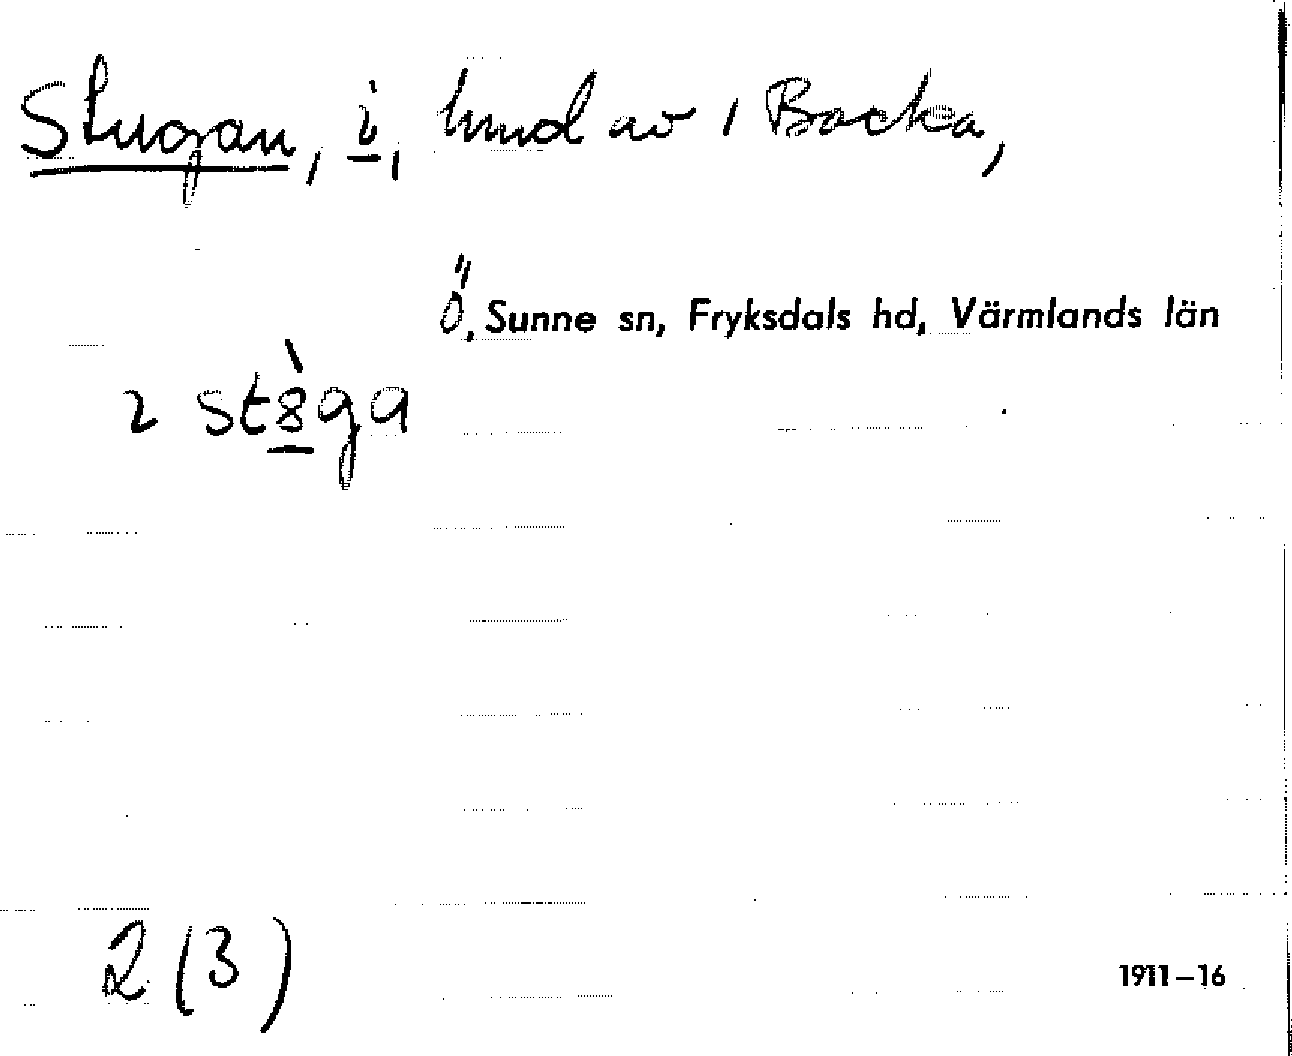 Stugan, i, hmd av 1 Backa,
Ö, Sunne sn, Fryksdals hd, Värmlands län
ɩ st8̀ga
2 (3)
1911–16